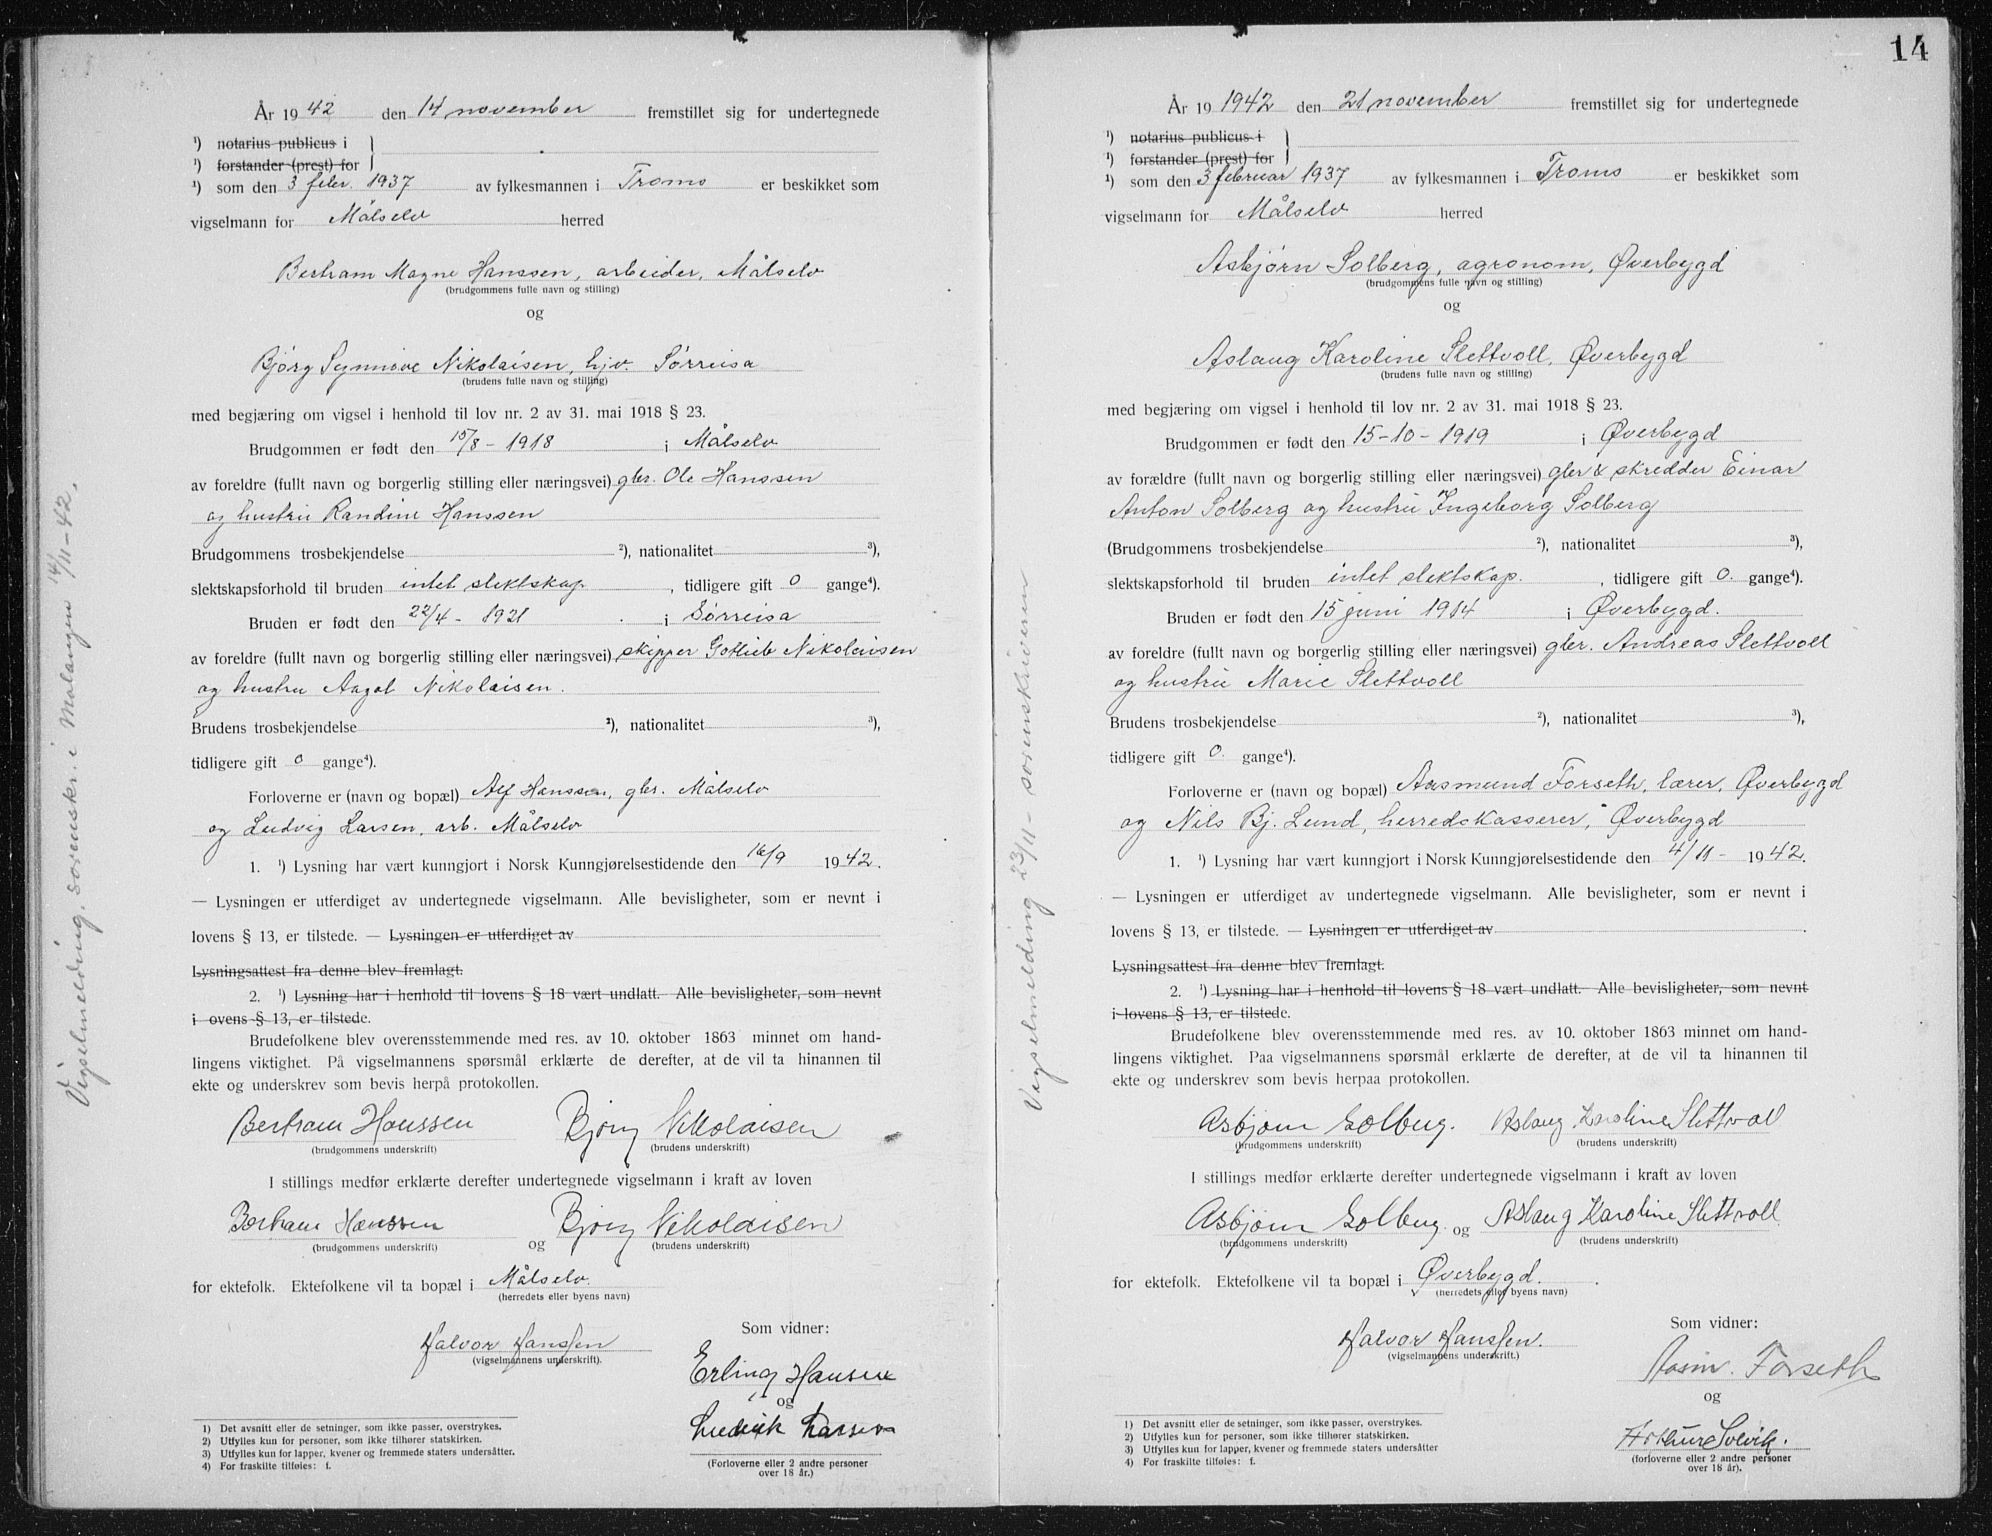 År 1942 den 14 november fremstillet sig for undertegnede
¹) notarius publicus i }
¹) forstander (prest) for
¹) som den 3 febr. 1937 av fylkesmannen i Troms er beskikket som
vigselmann for Målselv herred
Bertram Magne Hanssen, arbeider, Målselv
(brudgommens fulle navn og stilling)
og
Bjørg Synnöve Nikolaisen, hjv. Sørreisa
(brudens fulle navn og stilling)
med begjæring om vigsel i henhold til lov nr. 2 av 31. mai 1918 § 23.
Brudgommen er født den 15/8 - 1918 i Målselv
av foreldre (fullt navn og borgerlig stilling eller næringsvei) gbr. Ole Hanssen
og hustru Randine Hanssen
Brudgommens trosbekjendelse ²), nationalitet ³),
slektskapsforhold til bruden intet slektskap, tidligere gift 0 gange⁴).
Bruden er født den 22/4 - 1921 i Sørreisa
av foreldre (fullt navn og borgerlig stilling eller næringsvei) skipper Gotlieb Nikolaisen
og hustru Aagot Nikolaisen.
Brudens trosbekjendelse ²), nationalitet ³),
tidligere gift 0 gange⁴).
Forloverne er (navn og bopæl) Alf Hanssen, gbr. Målselv
og Ludvig Larsen, arb. Målselv
1. ¹) Lysning har vært kunngjort i Norsk Kunngjørelsestidende den 16/9 1942.
— Lysningen er utferdiget av undertegnede vigselmann. Alle bevisligheter, som er nevnt i
lovens § 13, er tilstede. — Lysningen er utferdiget av
Lysningsattest fra denne blev fremlagt.
2. ¹) Lysning har i henhold til lovens § 18 vært undlatt. Alle bevisligheter, som nevnt
i ovens § 13, er tilstede.
Brudefolkene blev overensstemmende med res. av 10. oktober 1863 minnet om hand-
lingens viktighet. På vigselmannens spørsmål erklærte de derefter, at de vil ta hinannen til
ekte og underskrev som bevis herpå protokollen.
Bertram Hanssen Bjørg Nikolaisen
(brudgommens underskrift) (brudens underskrift)
I stillings medfør erklærte derefter undertegnede vigselmann i kraft av loven
Bertram Hanssen og Bjørg Nikolaisen
(brudgommens underskrift) (brudens underskrift)
for ektefolk. Ektefolkene vil ta bopæl i Målselv.
(herredets eller byens navn)
Halvor Hanssen
(vigselmannens underskrift).
Som vidner:
Erling Hansen
og
Ludvik Larsen
(Forloverne eller 2 andre personer
over 18 år.)
1) Det avsnitt eller de setninger, som ikke passer, overstrykes.
2) Utfylles kun for personer, som ikke tilhører statskirken.
3) Utfylles kun for lapper, kvener og fremmede staters undersåtter.
4) For fraskilte tilføles: f.
Vigselmelding. sorenskr. i Malangen 14/11-42.
14
År 19 1942 den 21 november fremstillet sig for undertegnede
¹) notarius publicus i }
¹) forstander (prest) for
¹) som den 3 februar 1937 av fylkesmannen i Troms er beskikket som
vigselmann for Målselv herred
Asbjørn Solberg, agronom, Øverbygd
(brudgommens fulle navn og stilling)
og
Aslaug Karoline Slettvoll, Øverbygd
(brudens fulle navn og stilling)
med begjæring om vigsel i henhold til lov nr. 2 av 31. mai 1918 § 23.
Brudgommen er født den 15-10-1919 i Øverbygd
av forældre (fullt navn og borgerlig stilling eller næringsvei) gbr & skredder Einar
Anton Solberg og hustru Ingeborg Solberg
(Brudgommens trosbekjendelse ²), nationalitet ³),
slektskapsforhold til bruden intet slektskap., tidligere gift 0. gange⁴).
Bruden er født den 15 juni 1914 i Øverbygd.
av foreldre (fullt navn og borgerlig stilling eller næringsvei) gbr. Andreas Slettvoll
og hustru Marie Slettvoll
Brudens trosbekjendelse ²), nationalitet ³),
tidligere gift 0. gange⁴).
Forloverne er (navn og bopæl) Aasmund Forseth, lærer, Øverbygd
og Nils Bj. Lund, herredskasserer, Øverbygd
1. ¹) Lysning har vært kunngjort i Norsk Kunngjørelsestidende den 4/11 - 1942.
— Lysningen er utferdiget av undertegnede vigselmann. Alle bevisligheter, som er nevnt i
lovens § 13, er tilstede. — Lysningen er utferdiget av
Lysningsattest fra denne blev fremlagt.
2. ¹) Lysning har i henhold til lovens § 18 vært undlatt. Alle bevisligheter, som nevnt
i lovens § 13, er tilstede.
Brudefolkene blev overensstemmende med res. av 10. oktober 1863 minnet om hand-
lingens viktighet. Paa vigselmannens spørsmål erklærte de derefter, at de vil ta hinannen til
ekte og underskrev som bevis herpaa protokollen.
Asbjørn Solberg. Aslaug Karoline Slettvoll
(brudgommens underskrift) (brudens underskrift)
I stillings medfør erklærte derefter undertegnede vigselmann i kraft av loven
Asbjørn Solberg og Aslaug Karoline Slettvoll
(brudgommens underskrift) (brudens underskrift)
for ektefolk. Ektefolkene vil ta bopæl i Øverbygd.
(herredets eller byens navn)
Halvor Hanssen.
(vigselmannens underskrift.)
Som vidner:
Aasm. Forseth
og
Arthur Solvik.
(forloverne eller 2 andre personer
over 18 år).
1) Det avsnitt eller de setninger, som ikke passer, overstrykes.
2) Utfylles kun for personer, som ikke tilhører statskirken.
3) Utfylles kun for lapper, kvener og fremmede staters undersåtter
4) For fraskilte tilføles: f.
Vigselmelding 23/11 - sorenskriveren